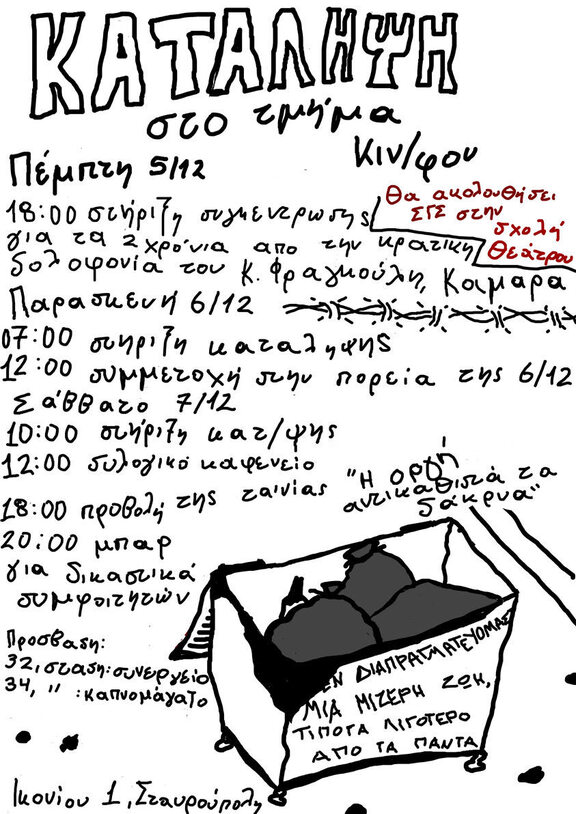 ΚΑΤΑΛΗΨΗ
στο τμήμα
Κιν/φου
Πέμπτη 5/12
18:00 στήριξη συγκεντρωσης
για τα 2 χρόνια απο την κρατική
δολοφονία του Κ. Φραγκούλη, Καμαρα
Θα ακολουθήσει
ΣΓΣ στην
σχολή
Θεάτρου
Παρασκευή 6/12
07:00 στηριξη καταληψης
12:00 συμμετοχή στην πορεία της 6/12
Σάββατο 7/12
10:00 στήριξη κατ/ψης
12:00 συλογικό καφενείο
18:00 προβολή της ταινίας
"Η οργή
αντικαθιστά τα
δάκρυα"
20:00 μπαρ
για δικαστικά
συμφοιτητών
Προσβαση:
32, σταση: συνεργείο
34, " : καπνομάγαζο
ΔΕΝ ΔΙΑΠΡΑΓΜΑΤΕΥΟΜΑΣΤΕ
ΜΙΑ ΜΙΖΕΡΗ ΖΩΗ,
ΤΙΠΟΤΑ ΛΙΓΟΤΕΡΟ
ΑΠΟ ΤΑ ΠΑΝΤΑ
Ικονίου 1, Σταυρούπολη